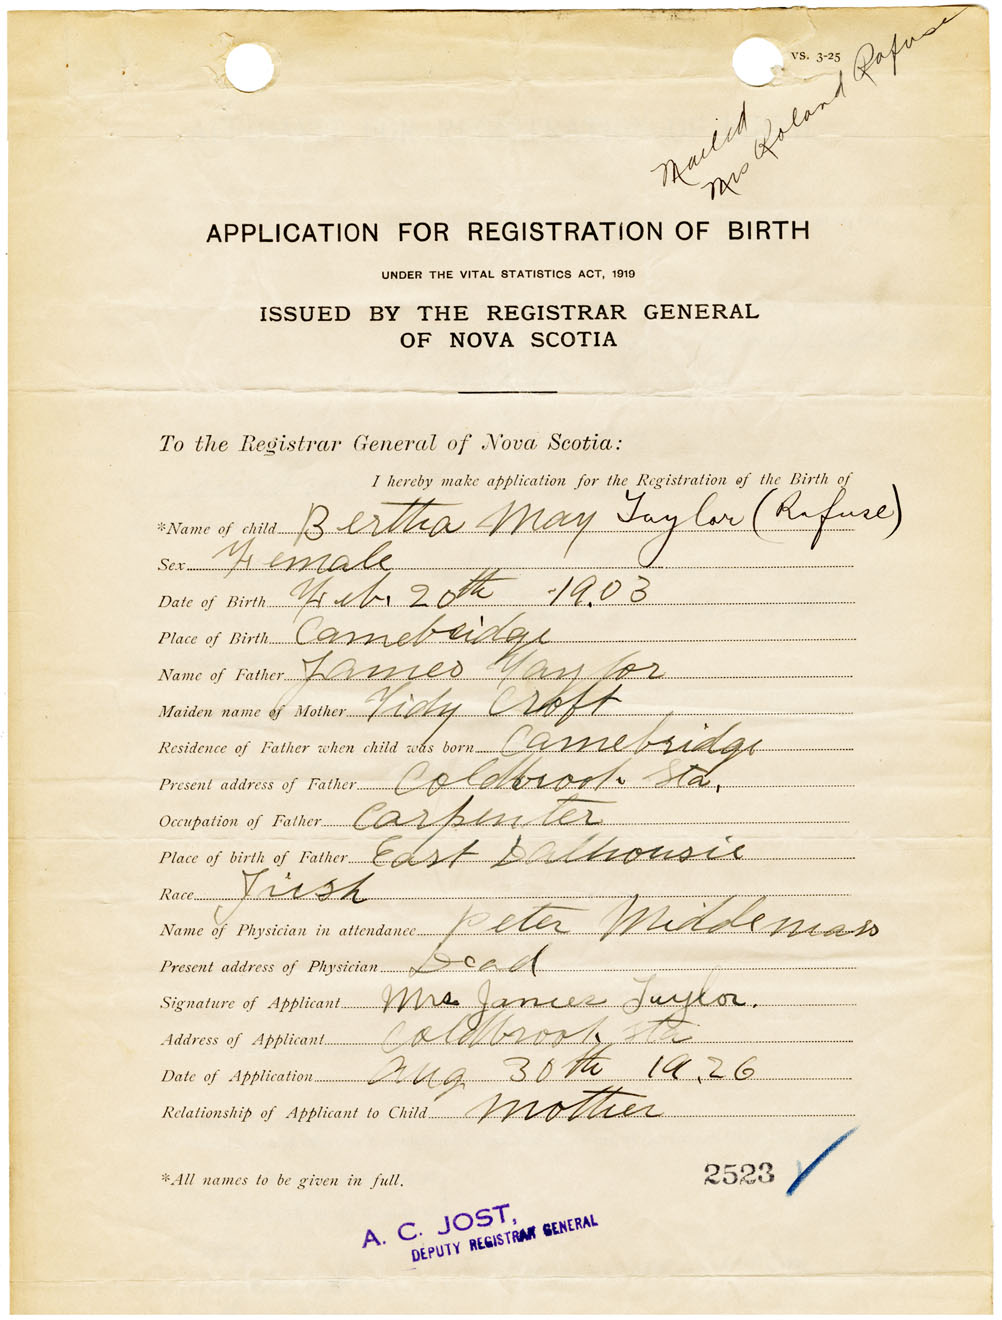 VS. 3-25
Mailed
Mrs Roland Rafuse
APPLICATION FOR REGISTRATION OF BIRTH
UNDER THE VITAL STATISTICS ACT, 1919
ISSUED BY THE REGISTRAR GENERAL
OF NOVA SCOTIA
To the Registrar General of Nova Scotia:
I hereby make application for the Registration of the Birth of
*Name of child Bertha May Taylor (Rafuse)
Sex Female
Date of Birth Feb. 20th 19.03
Place of Birth Camebridge
Name of Father James Taylor
Maiden name of Mother Tidy Croft
Residence of Father when child was born Camebridge
Present address of Father Coldbrook Sta.
Occupation of Father Carpenter
Place of birth of Father East Dalhousie
Race Irish
Name of Physician in attendance Peter Middlemass
Present address of Physician Dead
Signature of Applicant Mrs. James Taylor.
Address of Applicant Coldbrook Sta
Date of Application Aug 30th 19.26
Relationship of Applicant to Child Mother
*All names to be given in full.
2523
A. C. JOST,
DEPUTY REGISTRAR GENERAL